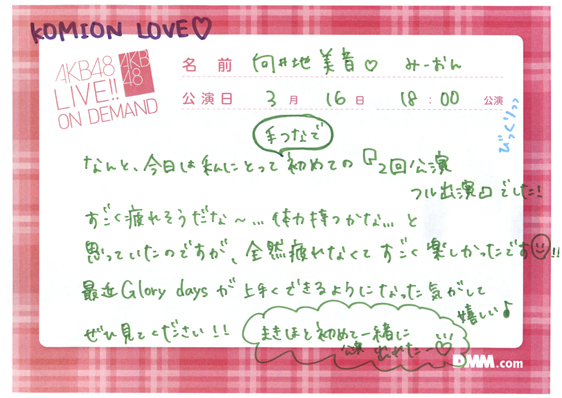 KOMION LOVE♡
AKB48
LIVE!!
ON DEMAND
AKB
48
名前 向井地美音♡ みーおん
公演日 3月 16日 18:00 公演
びっくりっっ
手つなで
なんと、今日は私にとって初めての『2回公演
フル出演』でした!
すごく疲れそうだな〜…体力持つかな…と
思っていたのですが、全然疲れなくてすごく楽しかったです!!
最近Glory daysが上手くできるようになった気がして
嬉しい♪
ぜひ見てください!!
まきほと初めて一緒に
公演出れたー♡
DMM.com